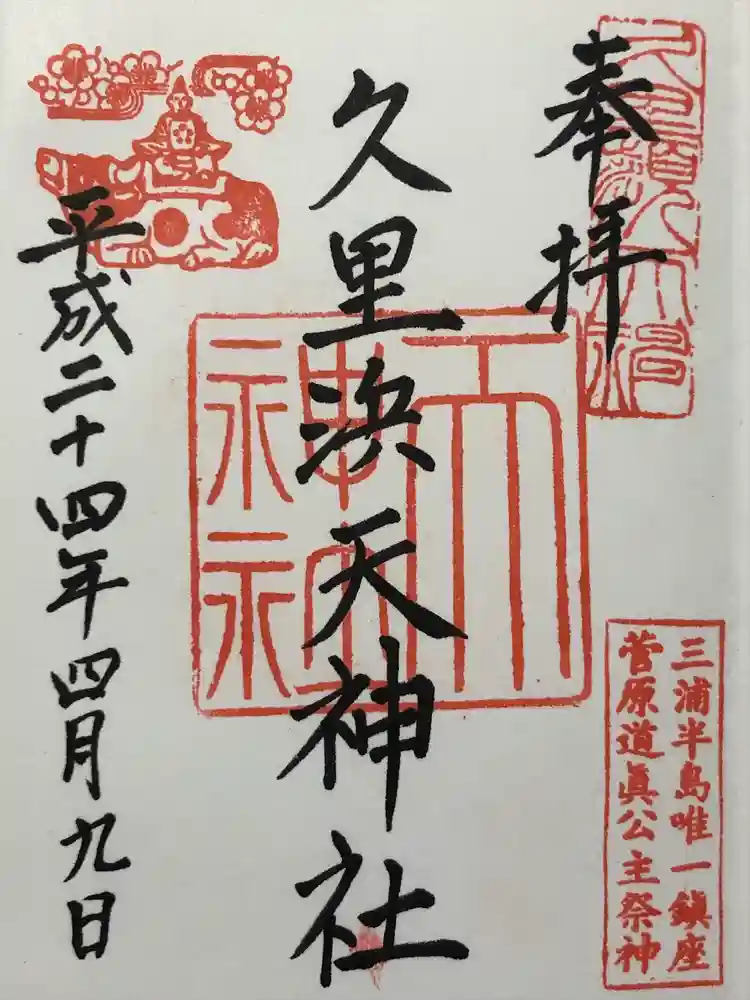 奉拝
三浦半島唯一鎮座
菅原道眞公主祭神
久里浜天神社
天神社
平成二十四年四月九日